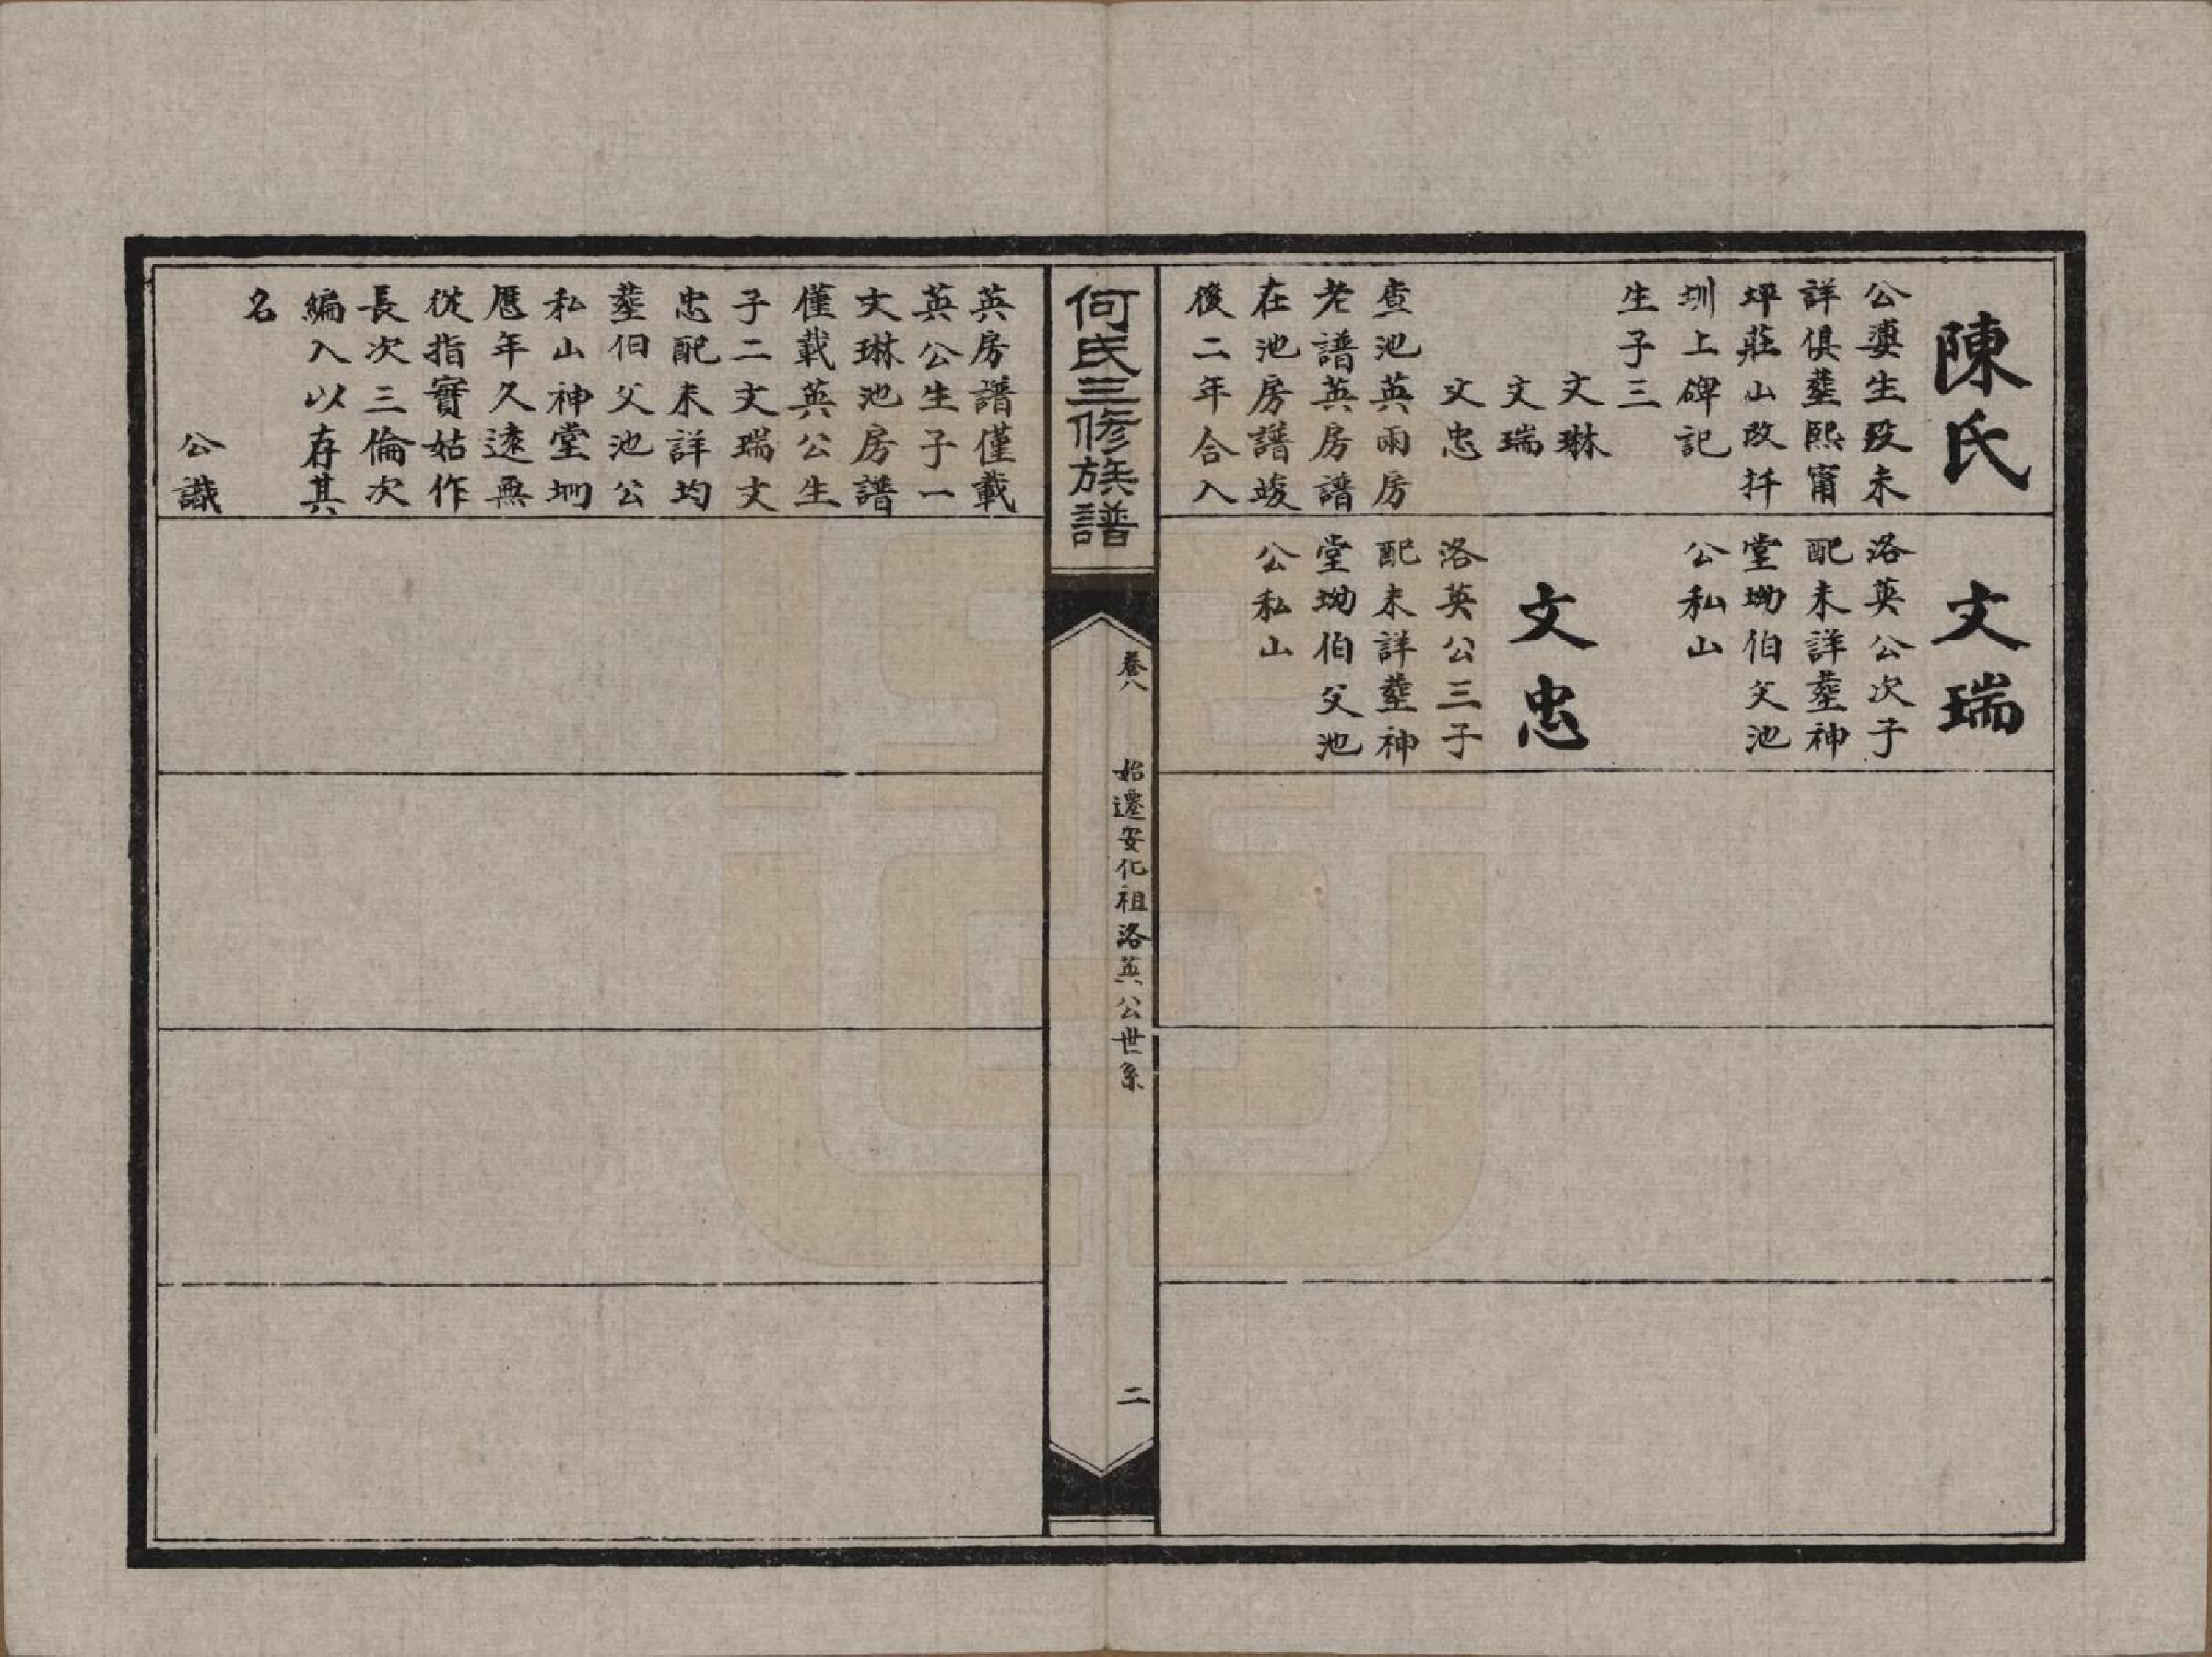 陳氏
公㜑生歿未
詳俱塟熙甯
坪莊山改扦
圳上碑記
生子三
文琳
文瑞
文忠
查池英兩房
老譜英房譜
在池房譜竣
後二年合入
文瑞
洛英公次子
配未詳塟神
堂坳伯父池
公私山
文忠
洛英公三子
配未詳塟神
堂坳伯父池
公私山
何氏三修族譜
卷八
始遷安化祖洛英公世系
二
英房譜僅載
英公生子一
文琳池房譜
僅載英公生
子二文瑞文
忠配未詳均
塟伯父池公
私山神堂坳
歷年久遠無
從指實姑作
長次三倫次
編入以存其
名
公識